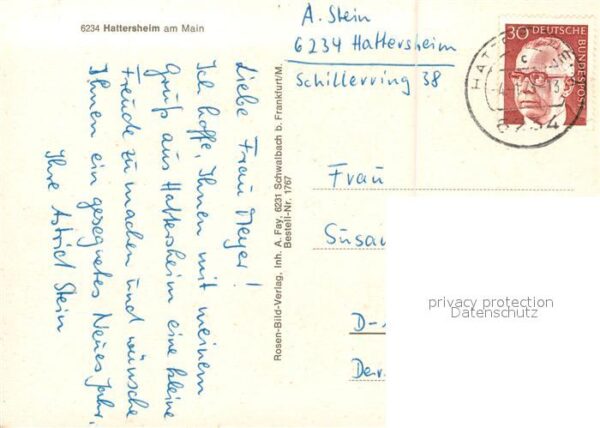 6234 Hattersheim am Main
A. Stein
6234 Hattersheim
Schillerring 38
30 DEUTSCHE
BUNDESPOST
c
6234
Liebe Frau Meyer!
Ich hoffe, Ihnen mit meinem
Gruß aus Hattersheim eine kleine
Freude zu machen und wünsche
Ihnen ein gesegnetes Neues Jahr.
Ihre Astrid Stein
Rosen-Bild-Verlag, Inh. A. Fay, 6231 Schwalbach b. Frankfurt/M.
Bestell-Nr. 1767
Frau
privacy protection
Datenschutz